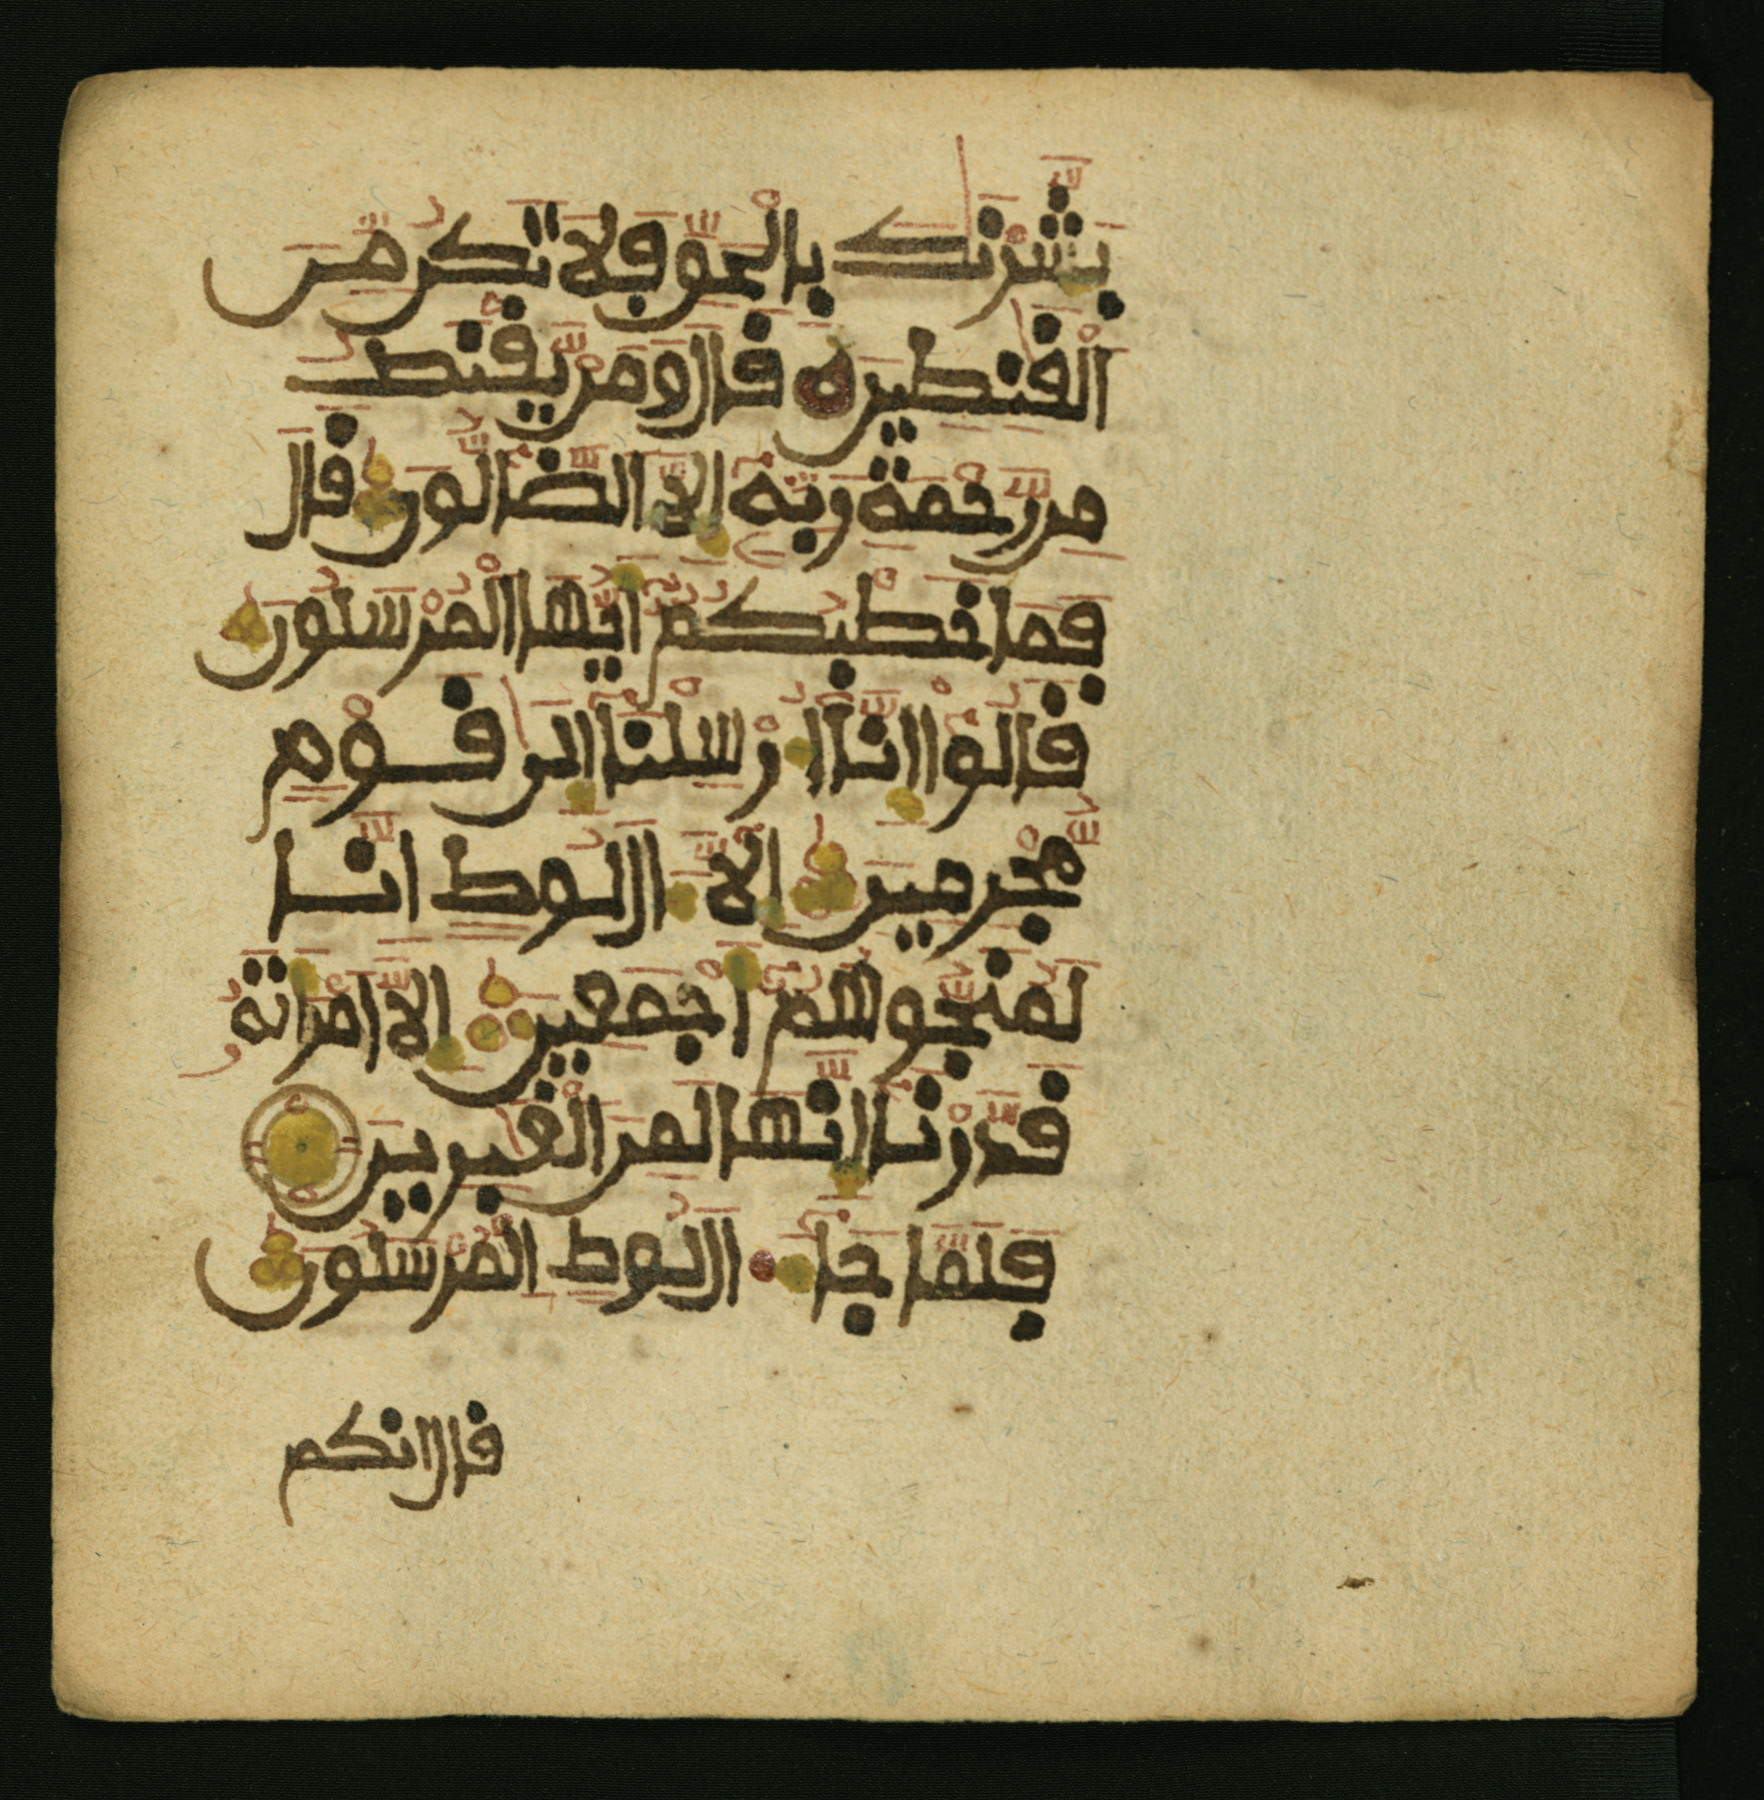 بشرنك بالحق فلا تكن من
القنطين ه قال ومن يقنط
من رحمة ربه إلا الضالون قال
فما خطبكم أيها المرسلون
قالوا إنا أرسلنا إلى قوم
مجرمين إلا ءال لوط إنا
لمنجوهم أجمعين إلا امرأته
قدرنا إنها لمن الغبرين
فلما جاء ءال لوط المرسلون
قال إنكم